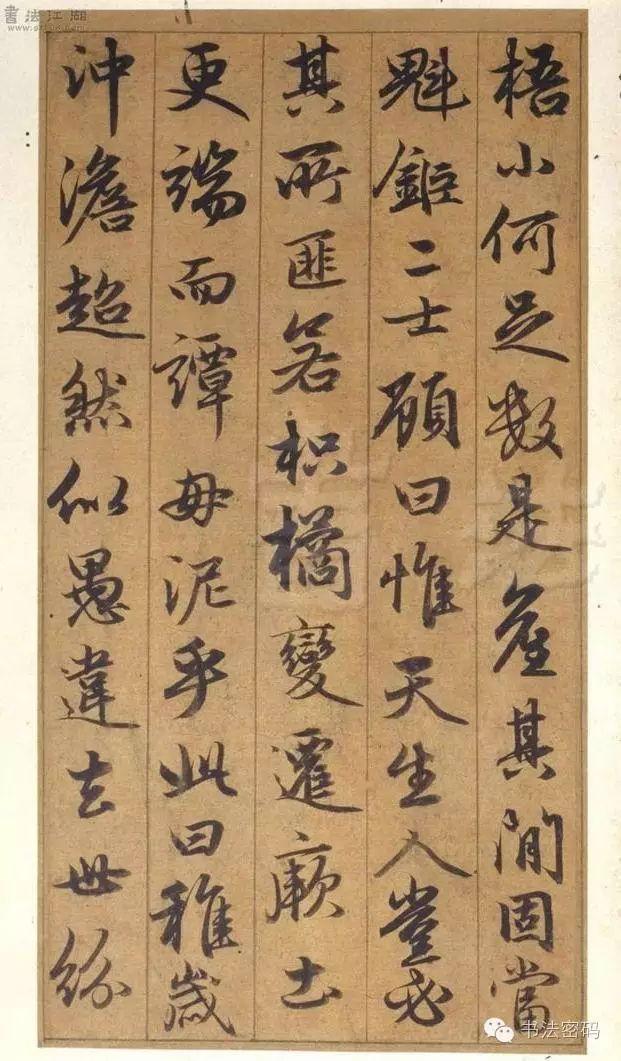 梧小何足数是產其間固當
魁鉅二士顧曰惟天生人豈必
其所匪若枳橘變遷厥土
更端而譚毋泥乎此曰稚歲
沖澹超然似愚違去世紛
書法江湖
书法密码